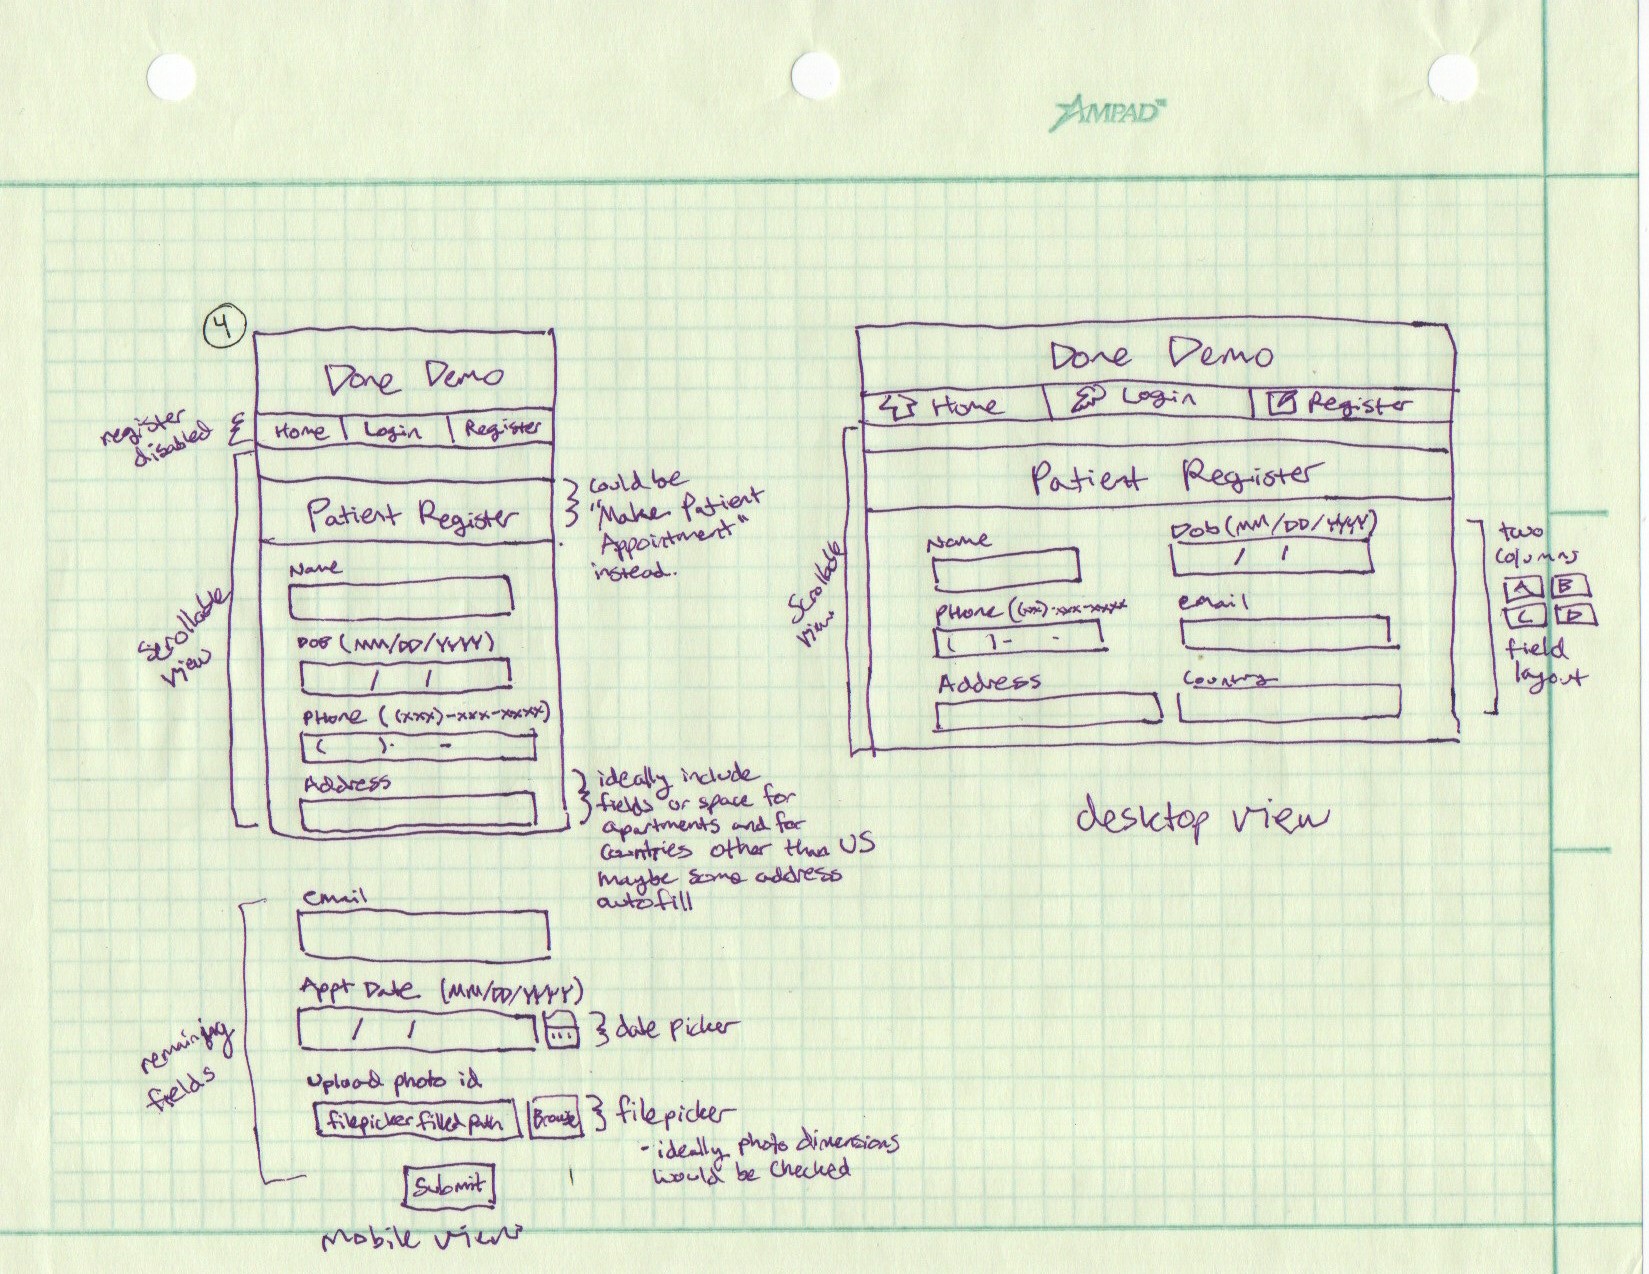 AMPAD
4
Done Demo
register
disabled
Home
Login
Register
Scrollable
view
Patient Register
could be
"Make Patient
Appointment"
instead.
Name
DOB (MM/DD/YYYY)
/ /
PHone ((xxx)-xxx-xxxx)
( )- -
Address
ideally include
fields or space for
apartments and for
countries other than US
maybe some address
autofill
remaining
fields
email
Appt Date (MM/DD/YYYY)
/ /
date picker
Upload photo id
filepicker filled path
Browse
filepicker
- ideally photo dimensions
would be checked
Submit
Mobile view
Done Demo
Home
Login
Register
Scrollable
view
Patient Register
Name
Dob (MM/DD/YYYY)
/ /
PHone ((xxx)-xxx-xxxx
( )- -
email
Address
Country
two
columns
A B
C D
field
layout
desktop view